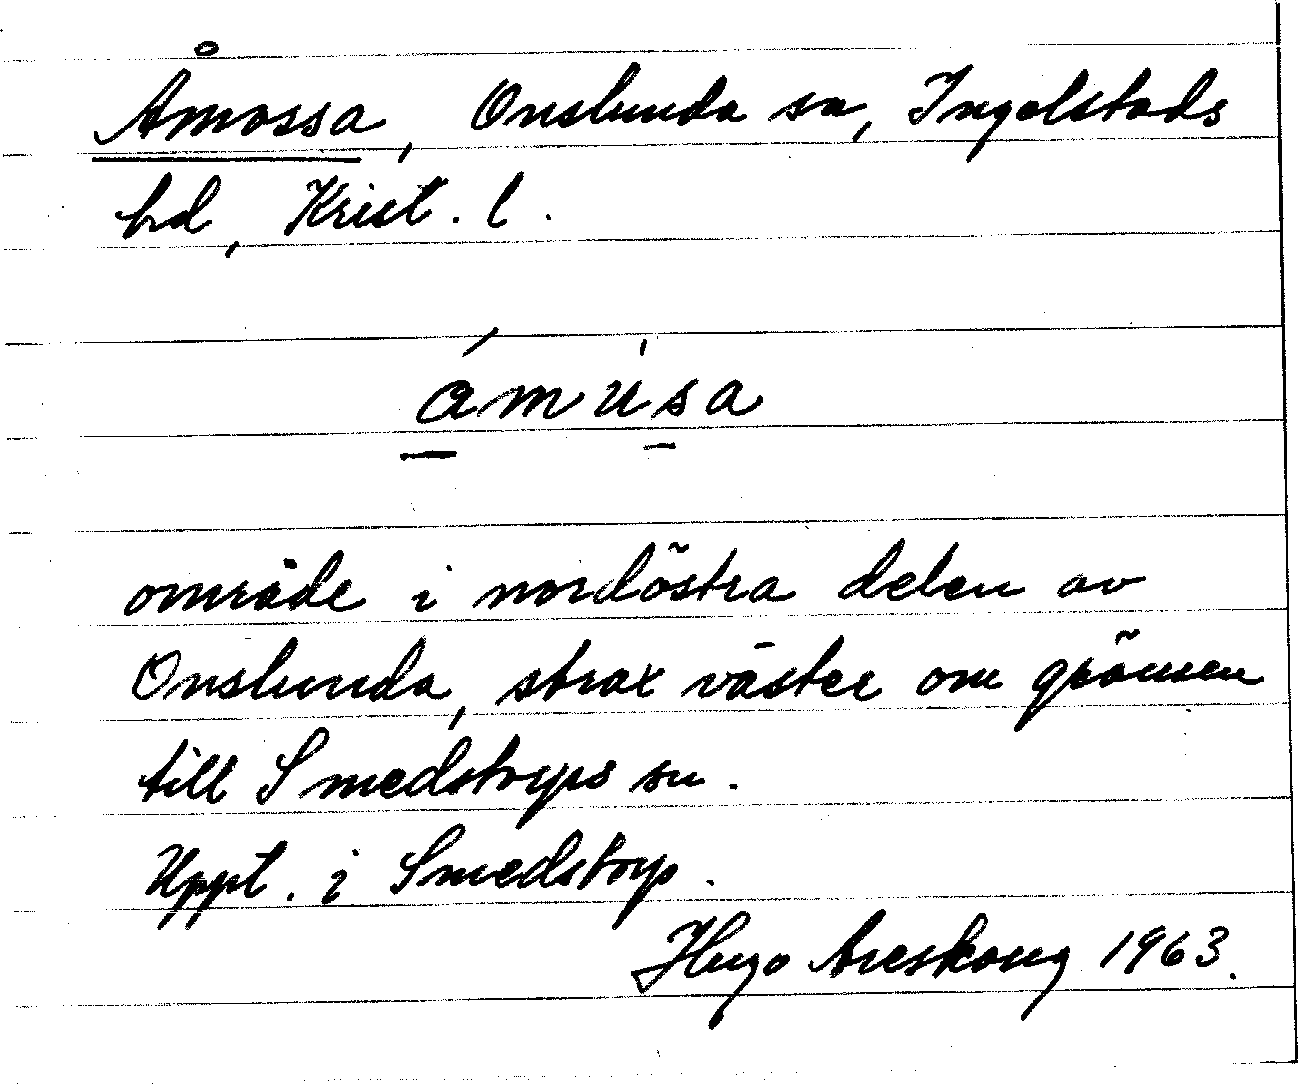 Åmossa, Onslunda sn, Ingelstads
hd, Krist. l.
ámúsa
område i nordöstra delen av
Onslunda, strax väster om gränsen
till Smedstorps sn.
Uppt. i Smedstorp.
Hugo Areskoug 1963.